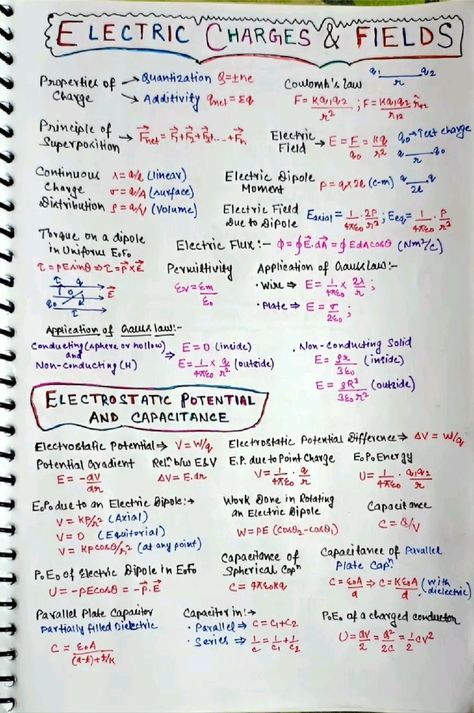 ELECTRIC CHARGES & FIELDS
Properties of Charge → Quantization Q=±ne
→ Additivity qnet = Σq
Coulomb's law
F = Kq1q2/r² ; F = Kq1q2/r12² r̂12
q1 r q2
Principle of Superposition → F⃗net = F⃗1+F⃗2+F⃗3+...+F⃗n
Electric Field → E = F/q0 = Kq/r²
q0 → Test charge
q r q0
Continuous Charge Distribution
λ = q/l (linear)
σ = q/A (surface)
ρ = q/V (volume)
Electric Dipole Moment P = q×2l (c-m)
-q 2l q
Electric Field Due to Dipole Eaxial = 1/4πε0 · 2P/r³ ; Eeq = 1/4πε0 · P/r³
Torque on a dipole in Uniform E.F.
τ = pE sinθ ⇒ τ⃗ = P⃗×E⃗
E⃗
Electric Flux:- φ = ∮E⃗.dA⃗ = ∮EdAcosθ (Nm²/c)
Permittivity
εr = εm/ε0
Application of Gauss law:-
• Wire → E = 1/4πε0 × 2λ/r ;
• Plate → E = σ/2ε0 ;
Application of Gauss law:-
Conducting (sphere or hollow) and Non-conducting (H)
→ E = 0 (inside)
E = 1/4πε0 × q/r² (outside)
• Non-Conducting Solid
E = ρr/3ε0 (inside)
E = ρR³/3ε0r² (outside)
ELECTROSTATIC POTENTIAL
AND CAPACITANCE
Electrostatic Potential → V = W/q
Electrostatic Potential Difference → ΔV = W/q
Potential Gradient
E = -dV/dr
Relⁿ b/w E&V
ΔV = E.dr
E.P. due to Point Charge
V = 1/4πε0 · q/r
E.P. Energy
U = 1/4πε0 · q1q2/r
E.P. due to an Electric Dipole:→
V = KP/r² (Axial)
V = 0 (Equitorial)
V = KPcosθ/r² (at any point)
Work Done in Rotating an Electric Dipole
W = PE (cosθ2 - cosθ1)
Capacitance
C = Q/V
P.E. of Electric Dipole in E.F.
U = -PEcosθ = -P⃗.E⃗
Capacitance of Spherical Capⁿ
C = 4πε0Ka
Capacitance of Parallel Plate Capⁿ
C = ε0A/d ⇒ C = Kε0A/d (with dielectric)
Parallel Plate Capacitor
Partially filled Dielectric
C = ε0A/(d-t)+t/K
Capacitor in:→
• Parallel → C = C1+C2
• Series → 1/C = 1/C1+1/C2
P.E. of a charged conductor
U = QV/2 = Q²/2C = 1/2 CV²